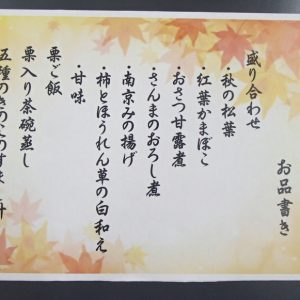 お品書き
盛り合わせ
・秋の松葉
・紅葉かまぼこ
・おさつ甘露煮
・さんまのおろし煮
・南京みの揚げ
・柿とほうれん草の白和え
・甘味
栗ご飯
栗入り茶碗蒸し
五種のきのこのすまし汁